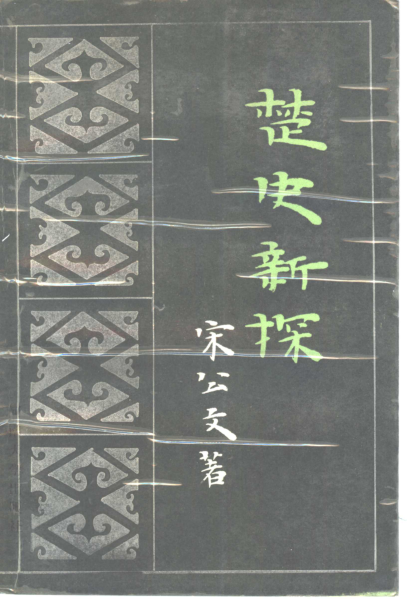 楚史新探
宋公文著